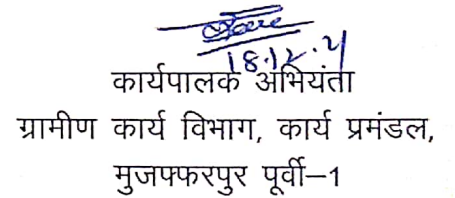 18.12.21
कार्यपालक अभियंता
ग्रामीण कार्य विभाग, कार्य प्रमंडल,
मुजफ्फरपुर पूर्वी–1